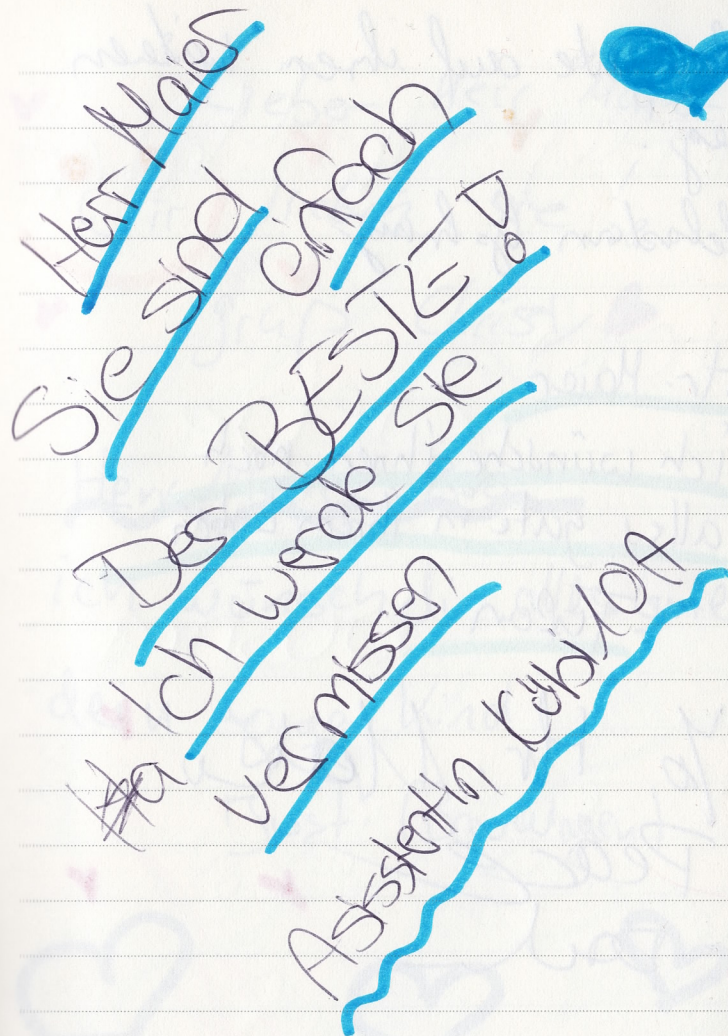 Herr Maier
Sie sind einfach
Der BESTE!
Ich werde Sie
vermissen
Assistentin Kübi 10A